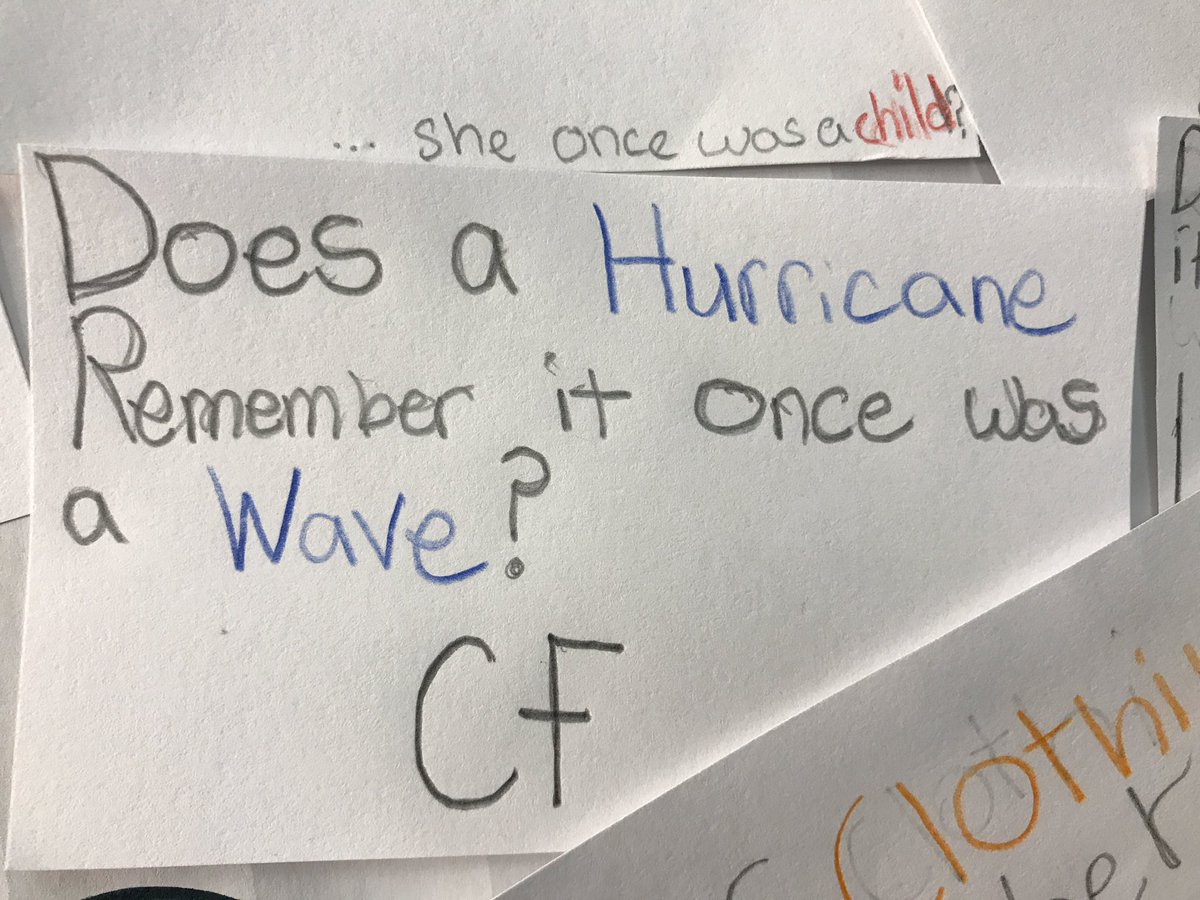 ... she once was a child?
Does a Hurricane
Remember it once was
a Wave?
CF